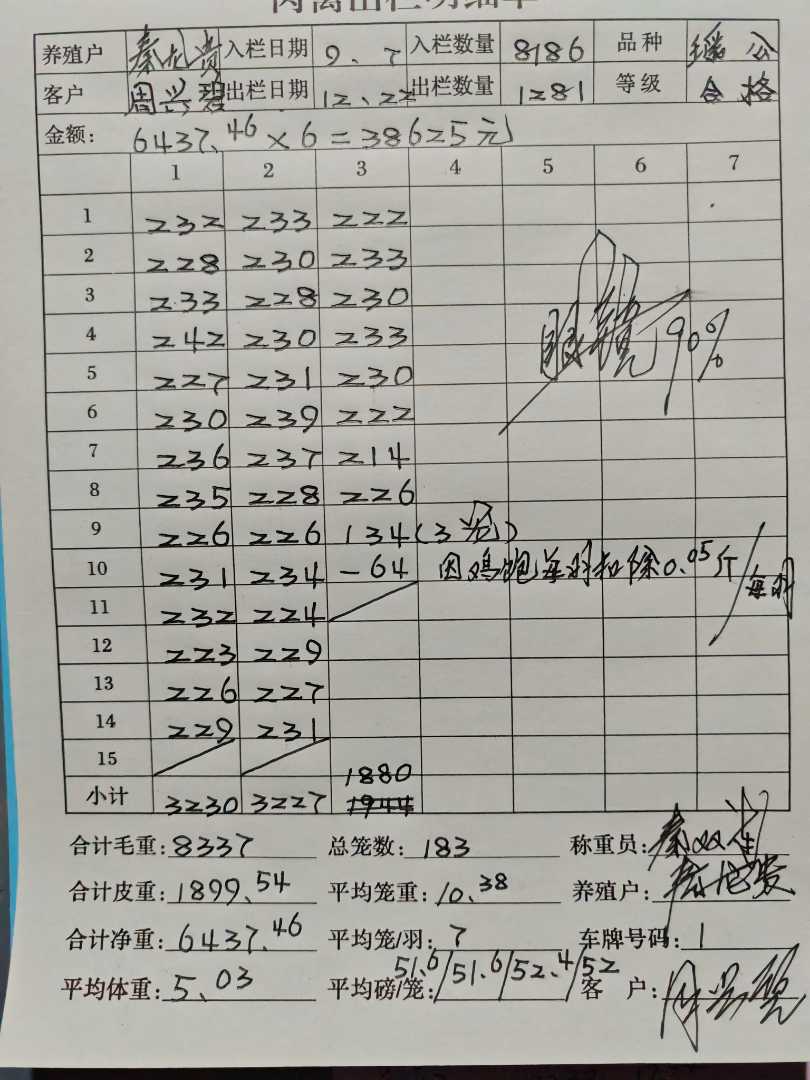 养殖户 秦龙贵 入栏日期 9、7 入栏数量 8186 品种 瑶公
客户 周兴碧 出栏日期 12、22 出栏数量 1281 等级 合格
金额: 6437.46×6=38625元
1 2 3 4 5 6 7
1 232 233 222
2 228 230 233
3 233 228 230
4 242 230 233
5 227 231 230
6 230 239 222
7 236 237 214
8 235 228 226
9 226 226 134(3笼)
10 231 234 -64 因鸡饱每羽扣除0.05斤/每羽
11 232 224
12 223 229
13 226 227
14 229 231
15
1880
小计 3230 3227 1944
90%
合计毛重: 8337 总笼数: 183 称重员: 秦双生
合计皮重: 1899.54 平均笼重: 10.38 养殖户:
合计净重: 6437.46 平均笼/羽: 7 车牌号码: 1
平均体重: 5、03 平均磅/笼: 51.6/51.6/52.4/52 客户: